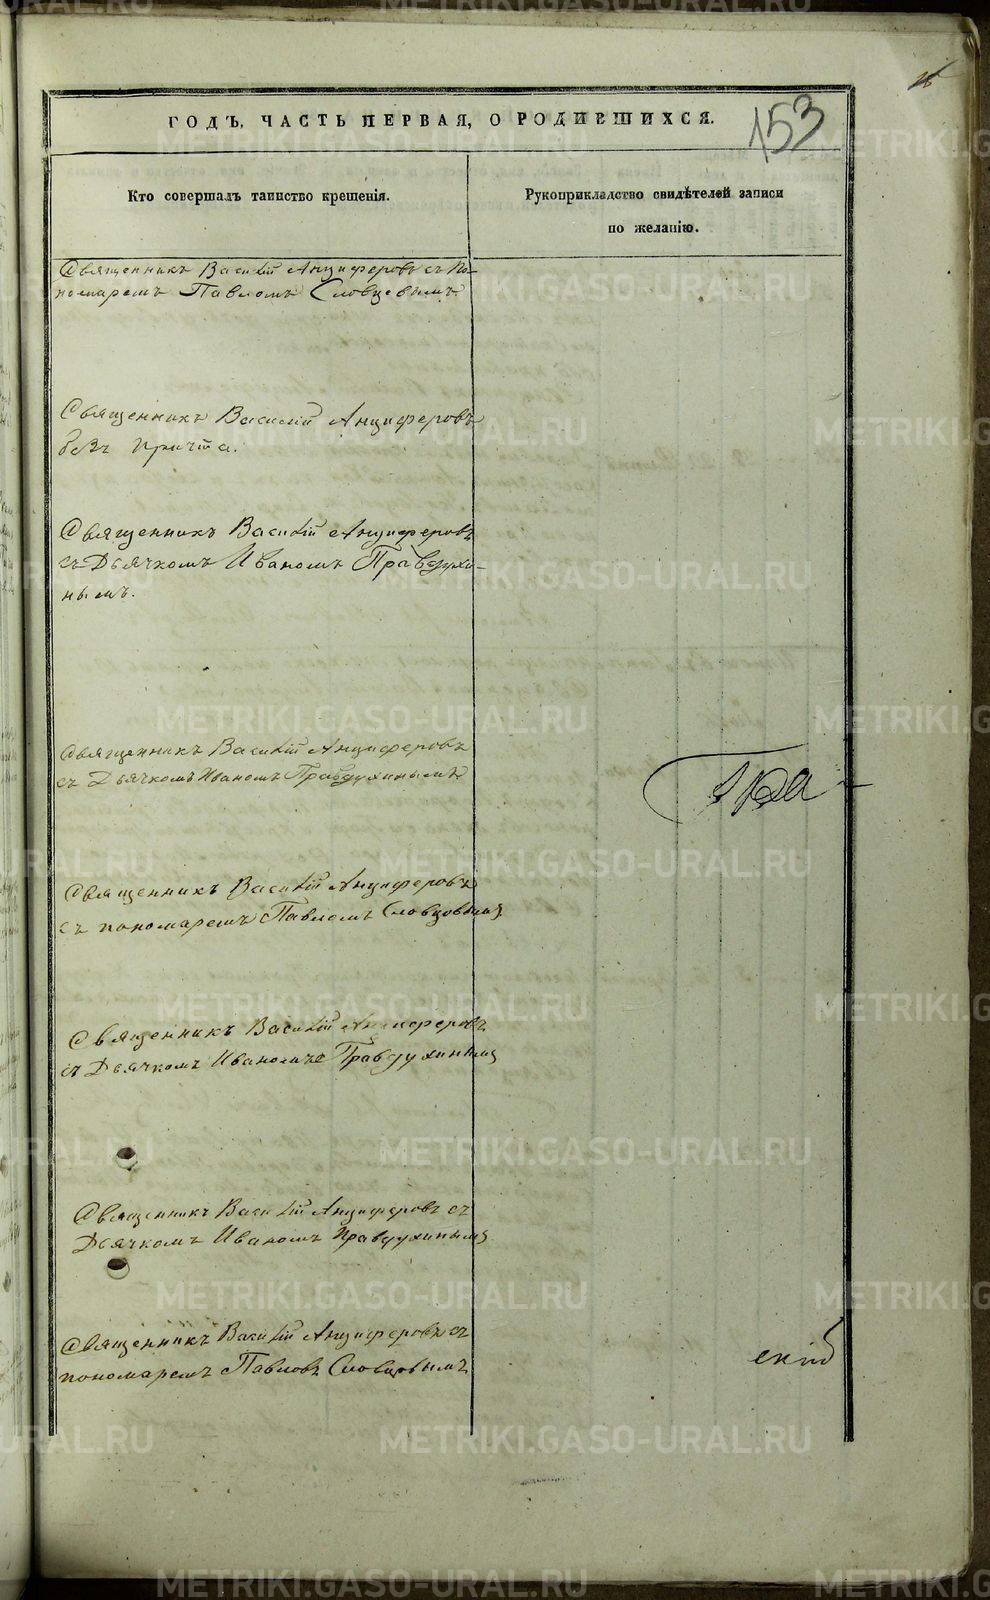 153
ГОДЪ, ЧАСТЬ ПЕРВАЯ, О РОДИВШИХСЯ.
Кто совершалъ таинство крещенія.
Рукоприкладство свидѣтелей записи
по желанію.
Священникъ Василій Анциферовъ съ По-
номаремъ Павломъ Словцовымъ.
Священникъ Василій Анциферовъ
безъ причта.
Священникъ Василій Анциферовъ
съ Дьячкомъ Иваномъ Правдухи-
нымъ.
Священникъ Василій Анциферовъ
съ Дьячкомъ Иваномъ Правдухинымъ
Священникъ Василій Анциферовъ
съ пономаремъ Павломъ Словцовымъ
Священникъ Василій Анциферовъ
съ Дьячкомъ Иваномъ Правдухинымъ
Священникъ Василій Анциферовъ съ
Дьячкомъ Иваномъ Правдухинымъ
Священникъ Василій Анциферовъ съ
пономаремъ Павловъ Словцовымъ
METRIKI.GASO-URAL.RU